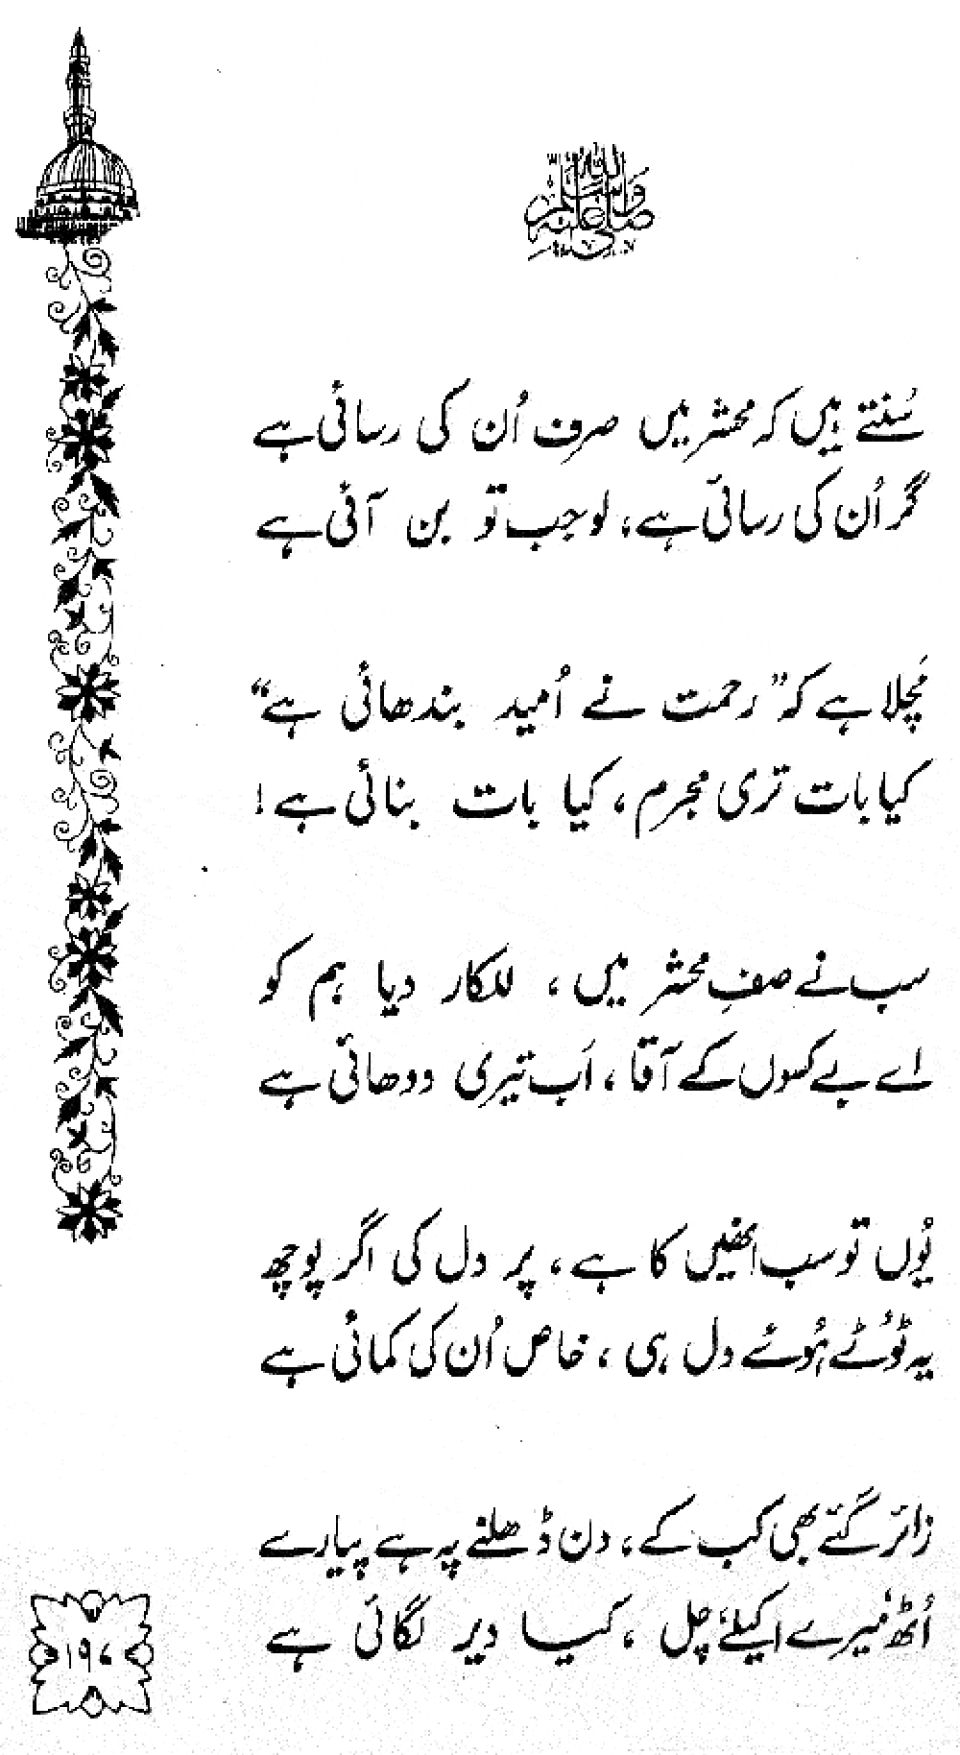 صَلَّى اللهُ عَلَيْهِ وَسَلَّم
سُنتے ہیں کہ محشر میں صرف اُن کی رسائی ہے
گر اُن کی رسائی ہے، لو جب تو بن آئی ہے
مَچلا ہے کہ ”رحمت نے اُمید بندھائی ہے“
کیا بات تری مجرم، کیا بات بنائی ہے!
سب نے صفِ محشر میں، للکار دیا ہم کو
اے بے کسوں کے آقا، اَب تیری دوہائی ہے
یُوں تو سب انھیں کا ہے، پر دل کی اگر پوچھ
یہ ٹُوٹے ہُوئے دل ہی، خاص اُن کی کمائی ہے
زائر گئے بھی کب کے، دن ڈھلنے پہ ہے پیارے
اُٹھ میرے اکیلے چل، کیا دیر لگائی ہے